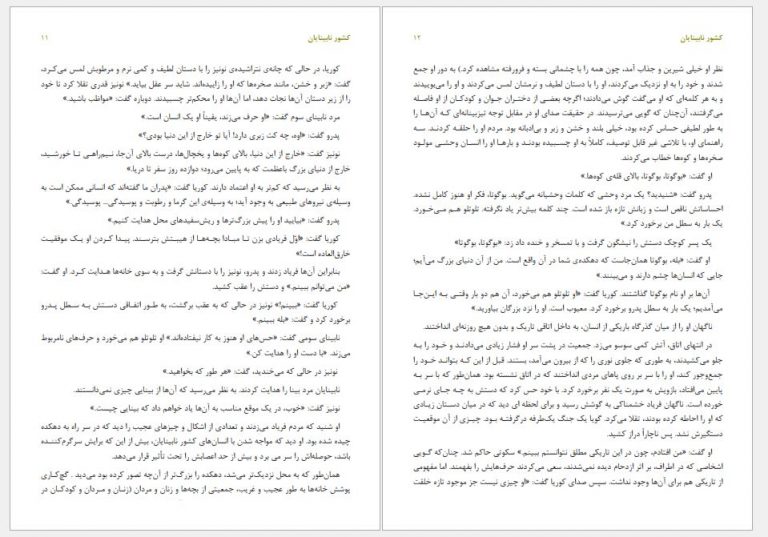 کشور نابینایان
۱۱
کوریا، در حالی که چانه‌ی نتراشیده‌ی نونیز را با دستان لطیف و کمی نرم و مرطوبش لمس می‌کرد،
گفت: «زبر و خشن، مانند صخره‌ها که او را زاییده‌اند. شاید سر عقل بیاید.» نونیز قدری تقلا کرد تا خود
را از زیر دستان آن‌ها نجات دهد، اما آن‌ها او را محکم‌تر چسبیدند. دوباره گفت: «مواظب باشید.»
مرد نابینای سوم گفت: «او حرف می‌زند، یقیناً او یک انسان است.»
پدرو گفت: «اوه، چه کت زبری دارد! آیا تو خارج از این دنیا بودی؟»
نونیز گفت: «خارج از این دنیا، بالای کوه‌ها و یخچال‌ها، درست بالای آن‌جا، نیم‌راهی تا خورشید،
خارج از دنیای بزرگ باعظمت که به پایین می‌رود؛ دوازده روز سفر تا دریا.»
به نظر می‌رسید که کم‌تر به او اعتماد دارند. کوریا گفت: «پدران ما گفته‌اند که انسانی ممکن است به
وسیله‌ی نیروهای طبیعی به وجود آید؛ به وسیله‌ی این گرما و رطوبت و پوسیدگی.. پوسیدگی.»
پدرو گفت: «بیایید او را پیش بزرگ‌ترها و ریش‌سفیدهای محل هدایت کنیم.»
کوریا گفت: «اوّل فریادی بزن تا مبادا بچه‌ها از هیبتش بترسند. پیدا کردن او یک موفقیت
خارق‌العاده است!»
بنابراین آن‌ها فریاد زدند و پدرو، نونیز را با دستانش گرفت و به سوی خانه‌ها هدایت کرد. او گفت:
«من می‌توانم ببینم.» و دستش را عقب کشید.
کوریا گفت: «ببینم!» نونیز در حالی که به عقب برگشت، به طور اتفاقی دستش به سطل پدرو
برخورد کرد و گفت: «بله ببینم.»
نابینای سومی گفت: «حس‌های او هنوز به کار نیفتاده‌اند.» او تلوتلو هم می‌خورد و حرف‌های نامربوط
می‌زند. «با دست او را هدایت کن.»
نونیز در حالی که می‌خندید، گفت: «هر طور که بخواهید.»
نابینایان مرد بینا را هدایت کردند. به نظر می‌رسید که آن‌ها از بینایی چیزی نمی‌دانستند.
نونیز گفت: «خوب، در یک موقع مناسب به آن‌ها یاد خواهم داد که بینایی چیست.»
او شنید که مردم فریاد می‌زدند و تعدادی از اشکال و چیزهای عجیب را دید که در سر راه به دهکده
چیده شده بود. او دید که مواجه شدن با انسان‌های کشور نابینایان، بیش از این که برایش سرگرم‌کننده
باشد، حوصله‌اش را سر می برد و بیش از حد اعصابش را تحت تأثیر قرار می‌دهد.
همان‌طور که به محل نزدیک‌تر می‌شد، دهکده را بزرگ‌تر از آن‌چه تصور کرده بود می‌دید . گچ‌کاری
پوشش خانه‌ها به طور عجیب و غریب، جمعیتی از بچه‌ها و زنان و مردان (زنـان و مـردان و کودکـان در
کشور نابینایان
۱۲
نظر او خیلی شیرین و جذاب آمد، چون همه را با چشمانی بسته و فرورفته مشاهده کرد.) به دور او جمع
شدند و خود را به او نزدیک می‌کردند، او را با دستان لطیف و نرمشان لمس می‌کردند و او را می‌بوییدند
و به هر کلمه‌ای که او می‌گفت گوش می‌دادند؛ اگرچه بعضی از دختران جـوان و کودکـان از او فاصله
می‌گرفتند، آن‌چنان که گویی می‌ترسیدند. در حقیقت صدای او در مقابل توجه تیزبینانه‌ای کـه آن‌هـا را
به طور لطیفی حساس کرده بود، خیلی بلند و خشن و زبر و بی‌ادبانه بود. مردم او را حلقـه کردنـد. سـه
راهنمای او، با تلاشی غیر قابل توصیف، کاملاً به او چسبیده بودنـد و بارهـا او را انسان وحشـی مولـود
صخره‌ها و کوه‌ها خطاب می‌کردند.
او گفت: «بوگوتا، بوگوتا، بالای قله‌ی کوه‌ها.»
پدرو گفت: «شنیدید؟ یک مرد وحشی که کلمات وحشیانه می‌گوید. بوگوتا، فکر او هنوز کامل نشده.
احساساتش ناقص است و زبانش تازه باز شده است. چند کلمه بیش‌تر یاد نگرفته. تلوتلو هـم مـی‌خـورد.
یک بار به سطل من برخورد کرد.»
یک پسر کوچک دستش را نیشگون گرفت و با تمسخر و خنده داد زد: «بوگوتا، بوگوتا»
او گفت: «بله، بوگوتا همان‌جاست که دهکده‌ی شما در آن واقع است. من از آن دنیای بزرگ می‌آیم؛
جایی که انسان‌ها چشم دارند و می‌بینند.»
آن‌ها بر او نام بوگوتا گذاشتند. کوریا گفت: «او تلوتلو هم می‌خورد، آن هم دو بار وقتـی بـه ایـن‌جـا
می‌آمدیم؛ یک بار به سطل پدرو برخورد کرد. معیوب است. او را نزد بزرگان بیاورید.»
ناگهان او را از میان گذرگاه باریکی از انسان، به داخل اتاقی تاریک و بدون هیچ روزنه‌ای انداختند.
در انتهای اتاق، آتش کمی سوسو می‌زد. جمعیت در پشت سر او فشار زیادی می‌دادنـد و خـود را بـه
جلو می‌کشیدند، به طوری که جلوی نوری را که از بیرون می‌آمد، بستند. قبل از این کـه بتوانـد خـود را
جمع‌وجور کند، او را با سر بر روی پاهای مردی انداختند که در اتاق نشسته بود. همان‌طور که با سر بـه
پایین می‌افتاد، بازویش به صورت یک نفر برخورد کرد. با خود حس کرد که دستش به چـه جـای نرمـی
خورده است. ناگهان فریاد خشمناکی به گوشش رسید و برای لحظه ای دید که در میان دستان زیـادی
که او را احاطه کرده بودند، تقلا می‌کرد. گویا یک جنگ یک‌طرفه درگرفتـه بـود. چیـزی از آن موقعیـت
دستگیرش نشد. پس ناچاراً دراز کشید.
او گفت: «من افتادم، چون در این تاریکی مطلق نتوانستم ببینم.» سکوتی حاکم شد. چنان‌که گـویی
اشخاصی که در اطراف، بر اثر ازدحام دیده نمی‌شدند، سعی می‌کردند حرف‌هایش را بفهمند. اما مفهومی
از تاریکی هم برای آن‌ها وجود نداشت. سپس صدای کوریا گفت: «او چیزی نیست جز موجود تازه خلقت